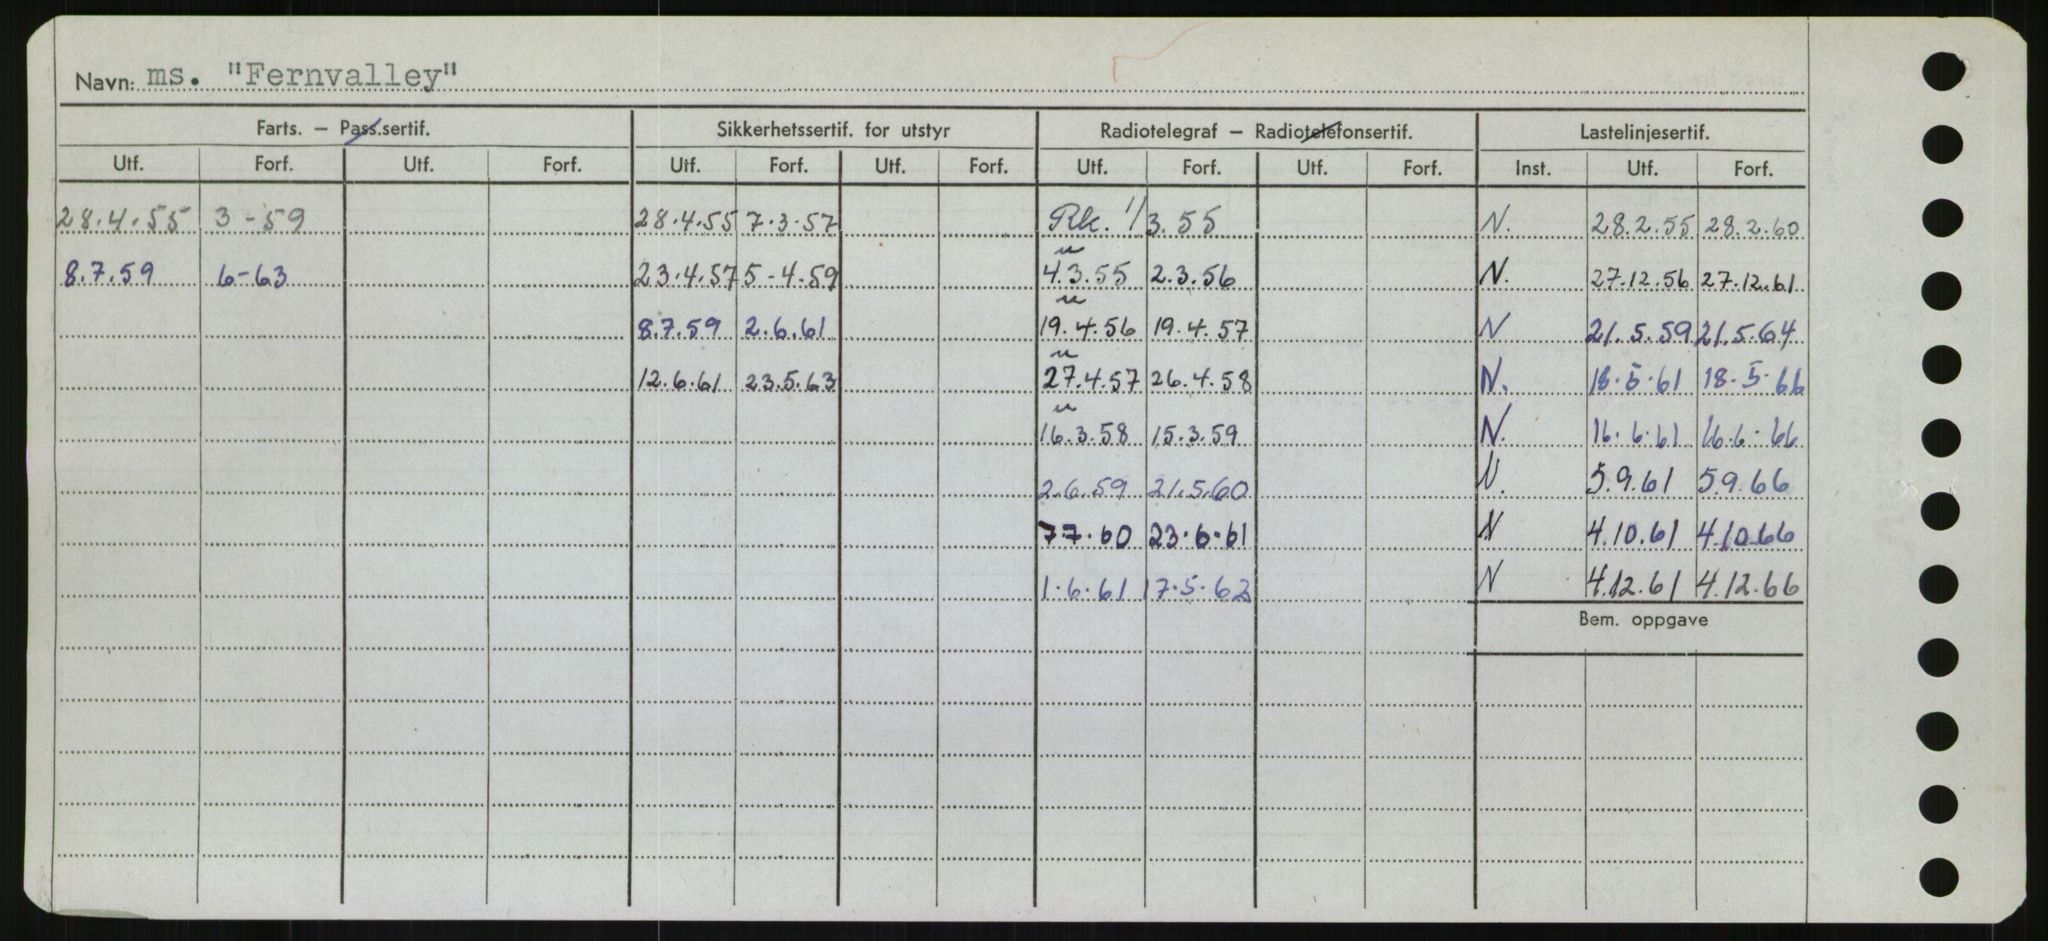 Navn: ms. "Fernvalley"
Farts. – Pass.sertif. Sikkerhetssertif. for utstyr Radiotelegraf – Radiotelefonsertif. Lastelinjesertif.
Utf. Forf. Utf. Forf. Utf. Forf. Utf. Forf. Utf. Forf. Utf. Forf. Inst. Utf. Forf.
28.4.55 3-59 28.4.55 7.3.57 Rk. 1/3.55 N. 28.2.55 28.2.60
8.7.59 6-63 23.4.57 5-4-59 " 4.3.55 2.3.56 N. 27.12.56 27.12.61
8.7.59 2.6.61 " 19.4.56 19.4.57 N 21.5.59 21.5.64
12.6.61 23.5.63 " 27.4.57 26.4.58 N. 18.5.61 18.5.66
" 16.3.58 15.3.59 N. 16.6.61 16.6.66
2.6.59 21.5.60 N. 5.9.61 5.9.66
7.7.60 23.6.61 N 4.10.61 4.10.66
1.6.61 17.5.62 N 4.12.61 4.12.66
Bem. oppgave